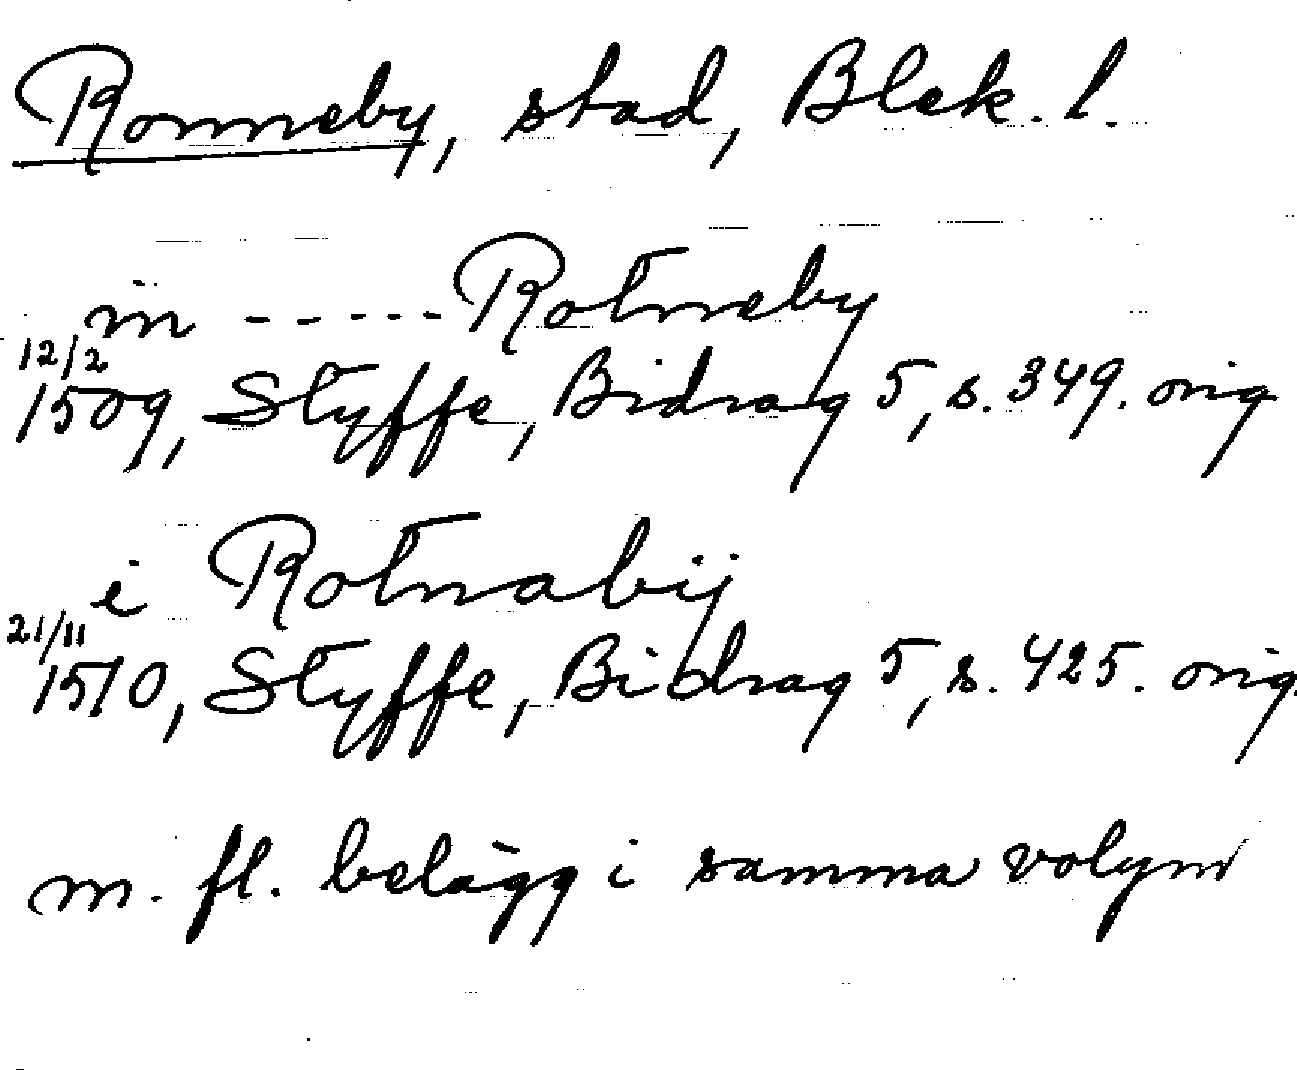 Ronneby, stad, Blek. l.
in ----- Rotneby
12/2
1509, Styffe, Bidrag 5, s. 349. orig
i Rotnabij
21/11
1510, Styffe, Bidrag 5, s. 425. orig.
m. fl. belägg i samma volym